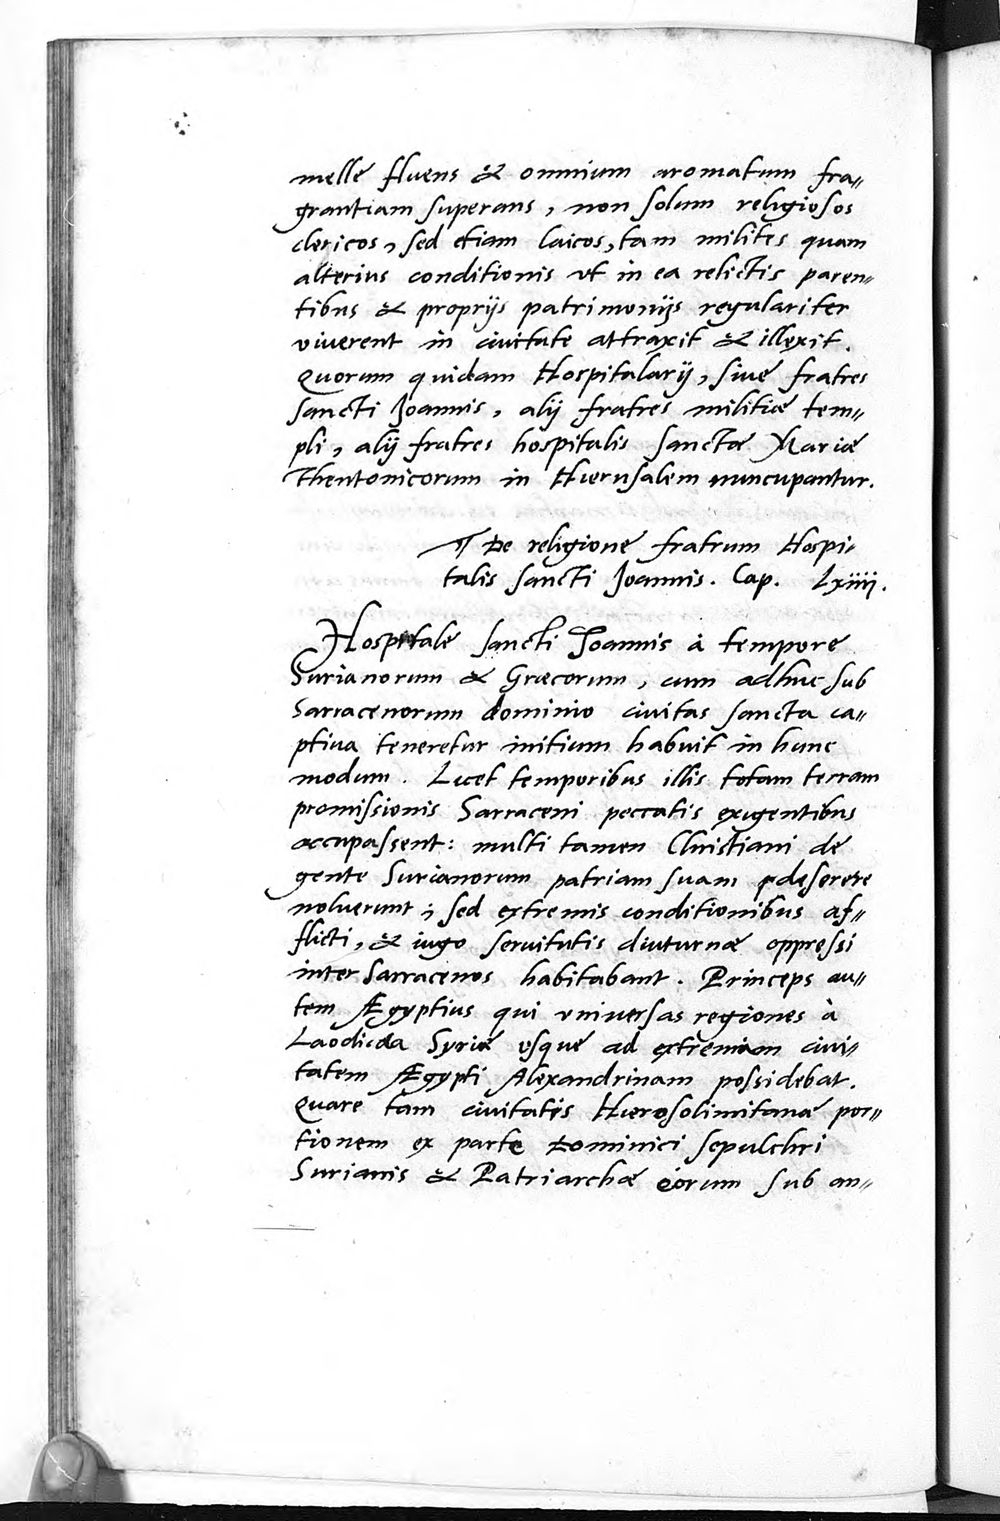 melle fluens & omnium aromatum fra„
grantiam superans, non solum religiosos
clericos, sed etiam laicos, tam milites quam
alterius conditionis vt in ea relictis paren„
tibus & proprijs patrimonijs regulariter
viuerent in ciuitate attraxit & illexit.
Quorum quidam Hospitalarij, siue fratres
sancti Joannis, alij fratres militiæ tem„
pli, alij fratres hospitalis sanctæ Mariæ
Theutonicorum in Hierusalem nuncupantur.
¶ De religione fratrum Hospi„
talis sancti Joannis. Cap. Lxiiij.
Hospitale sancti Joannis à tempore
Surianorum & Græcorum, cum adhuc sub
Sarracenorum dominio ciuitas sancta ca„
ptiua teneretur initium habuit in hunc
modum. Licet temporibus illis totam terram
promissionis Sarraceni peccatis exigentibus
occupassent: multi tamen Christiani de
gente Surianorum patriam suam deserere
noluerunt; sed extremis conditionibus af„
flicti, & iugo seruitutis diuturnæ oppressi
inter Sarracenos habitabant. Princeps au„
tem Ægyptius qui vniuersas regiones à
Laodicea Syriæ vsque ad extremam ciui„
tatem Ægypti Alexandrinam possidebat.
Quare tam ciuitatis Hierosolimitanæ por„
tionem ex parte Dominici sepulchri
Surianis & Patriarchæ eorum sub an„